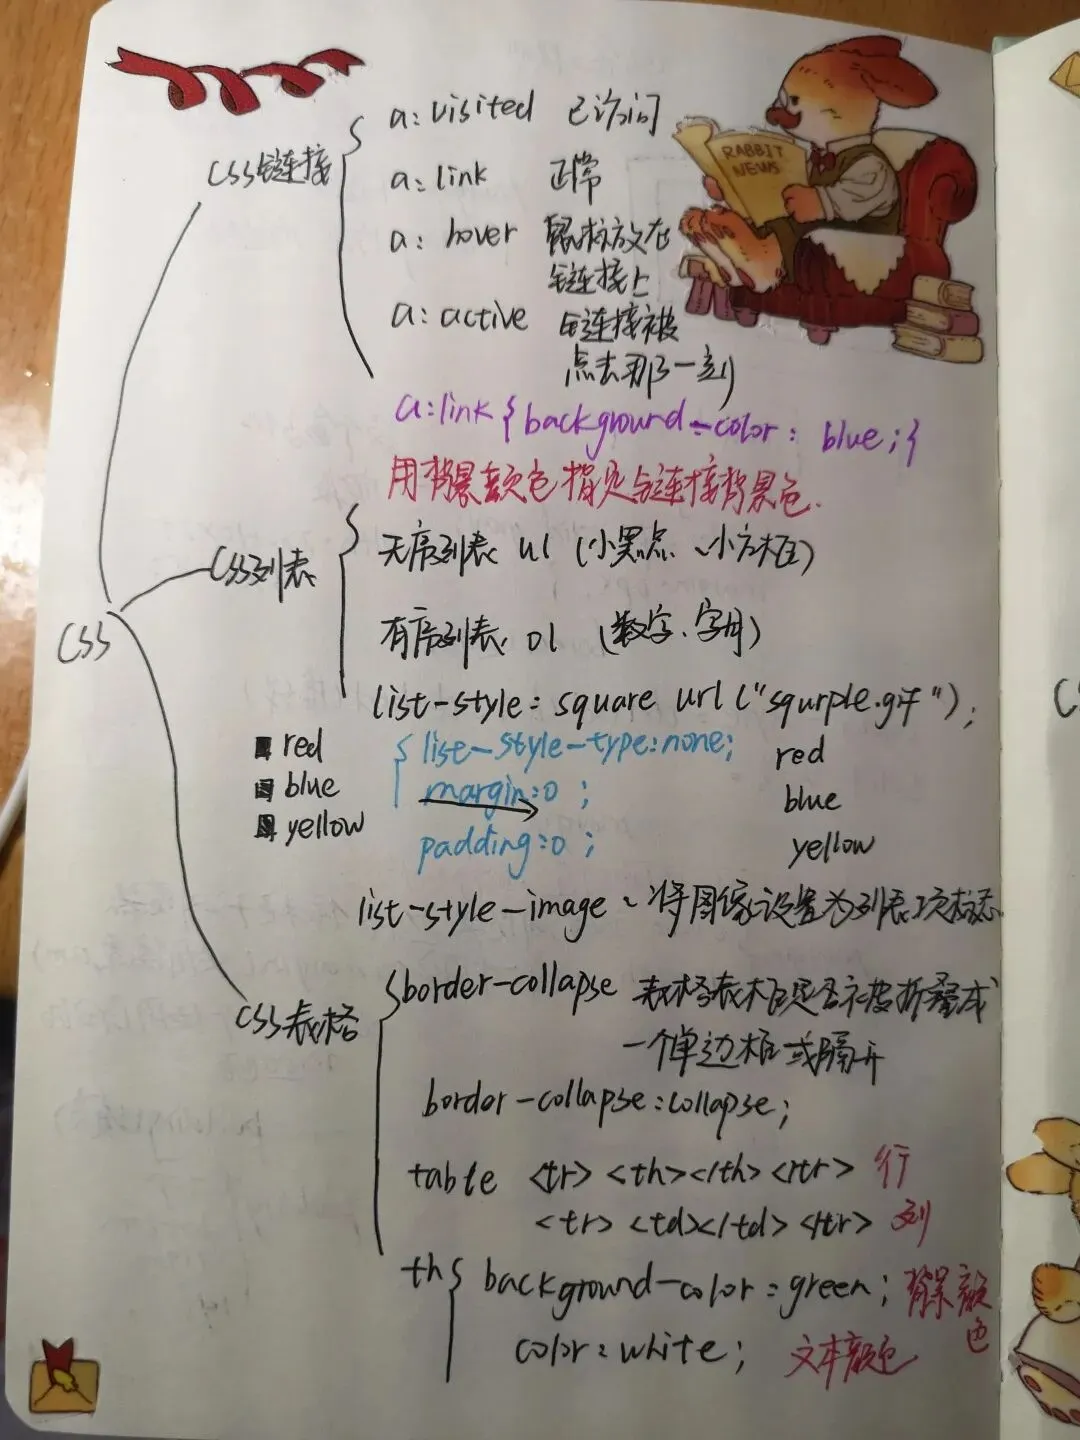 a:visited 已访问
RABBIT
NEWS
CSS链接
a:link 正常
a:hover 鼠标放在
链接上
a:active 链接被
点击那一刻
a:link{background-color: blue;{
用背景颜色指定链接背景色.
CSS列表
无序列表 ul (小黑点、小方框)
CSS
有序列表 ol (数字、字母)
list-style: square url("squrple.gif");
red
{list-style-type:none;
red
blue
margin:0;
blue
yellow
padding:0;
yellow
list-style-image、将图像设置为列表项标志.
CSS表格
{border-collapse 表格表框是否被折叠成
一个单边框或隔开
border-collapse:collapse;
table <tr> <th></th> </tr> 行
<tr> <td></td> </tr> 列
th{ background-color:green; 背景颜
色
color:white; 文本颜色